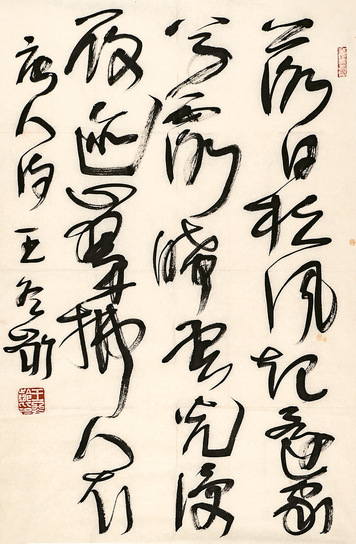 落日松風起還家
草露晞雲光侵
履迹山翠拂人衣
唐人诗 王冬齡